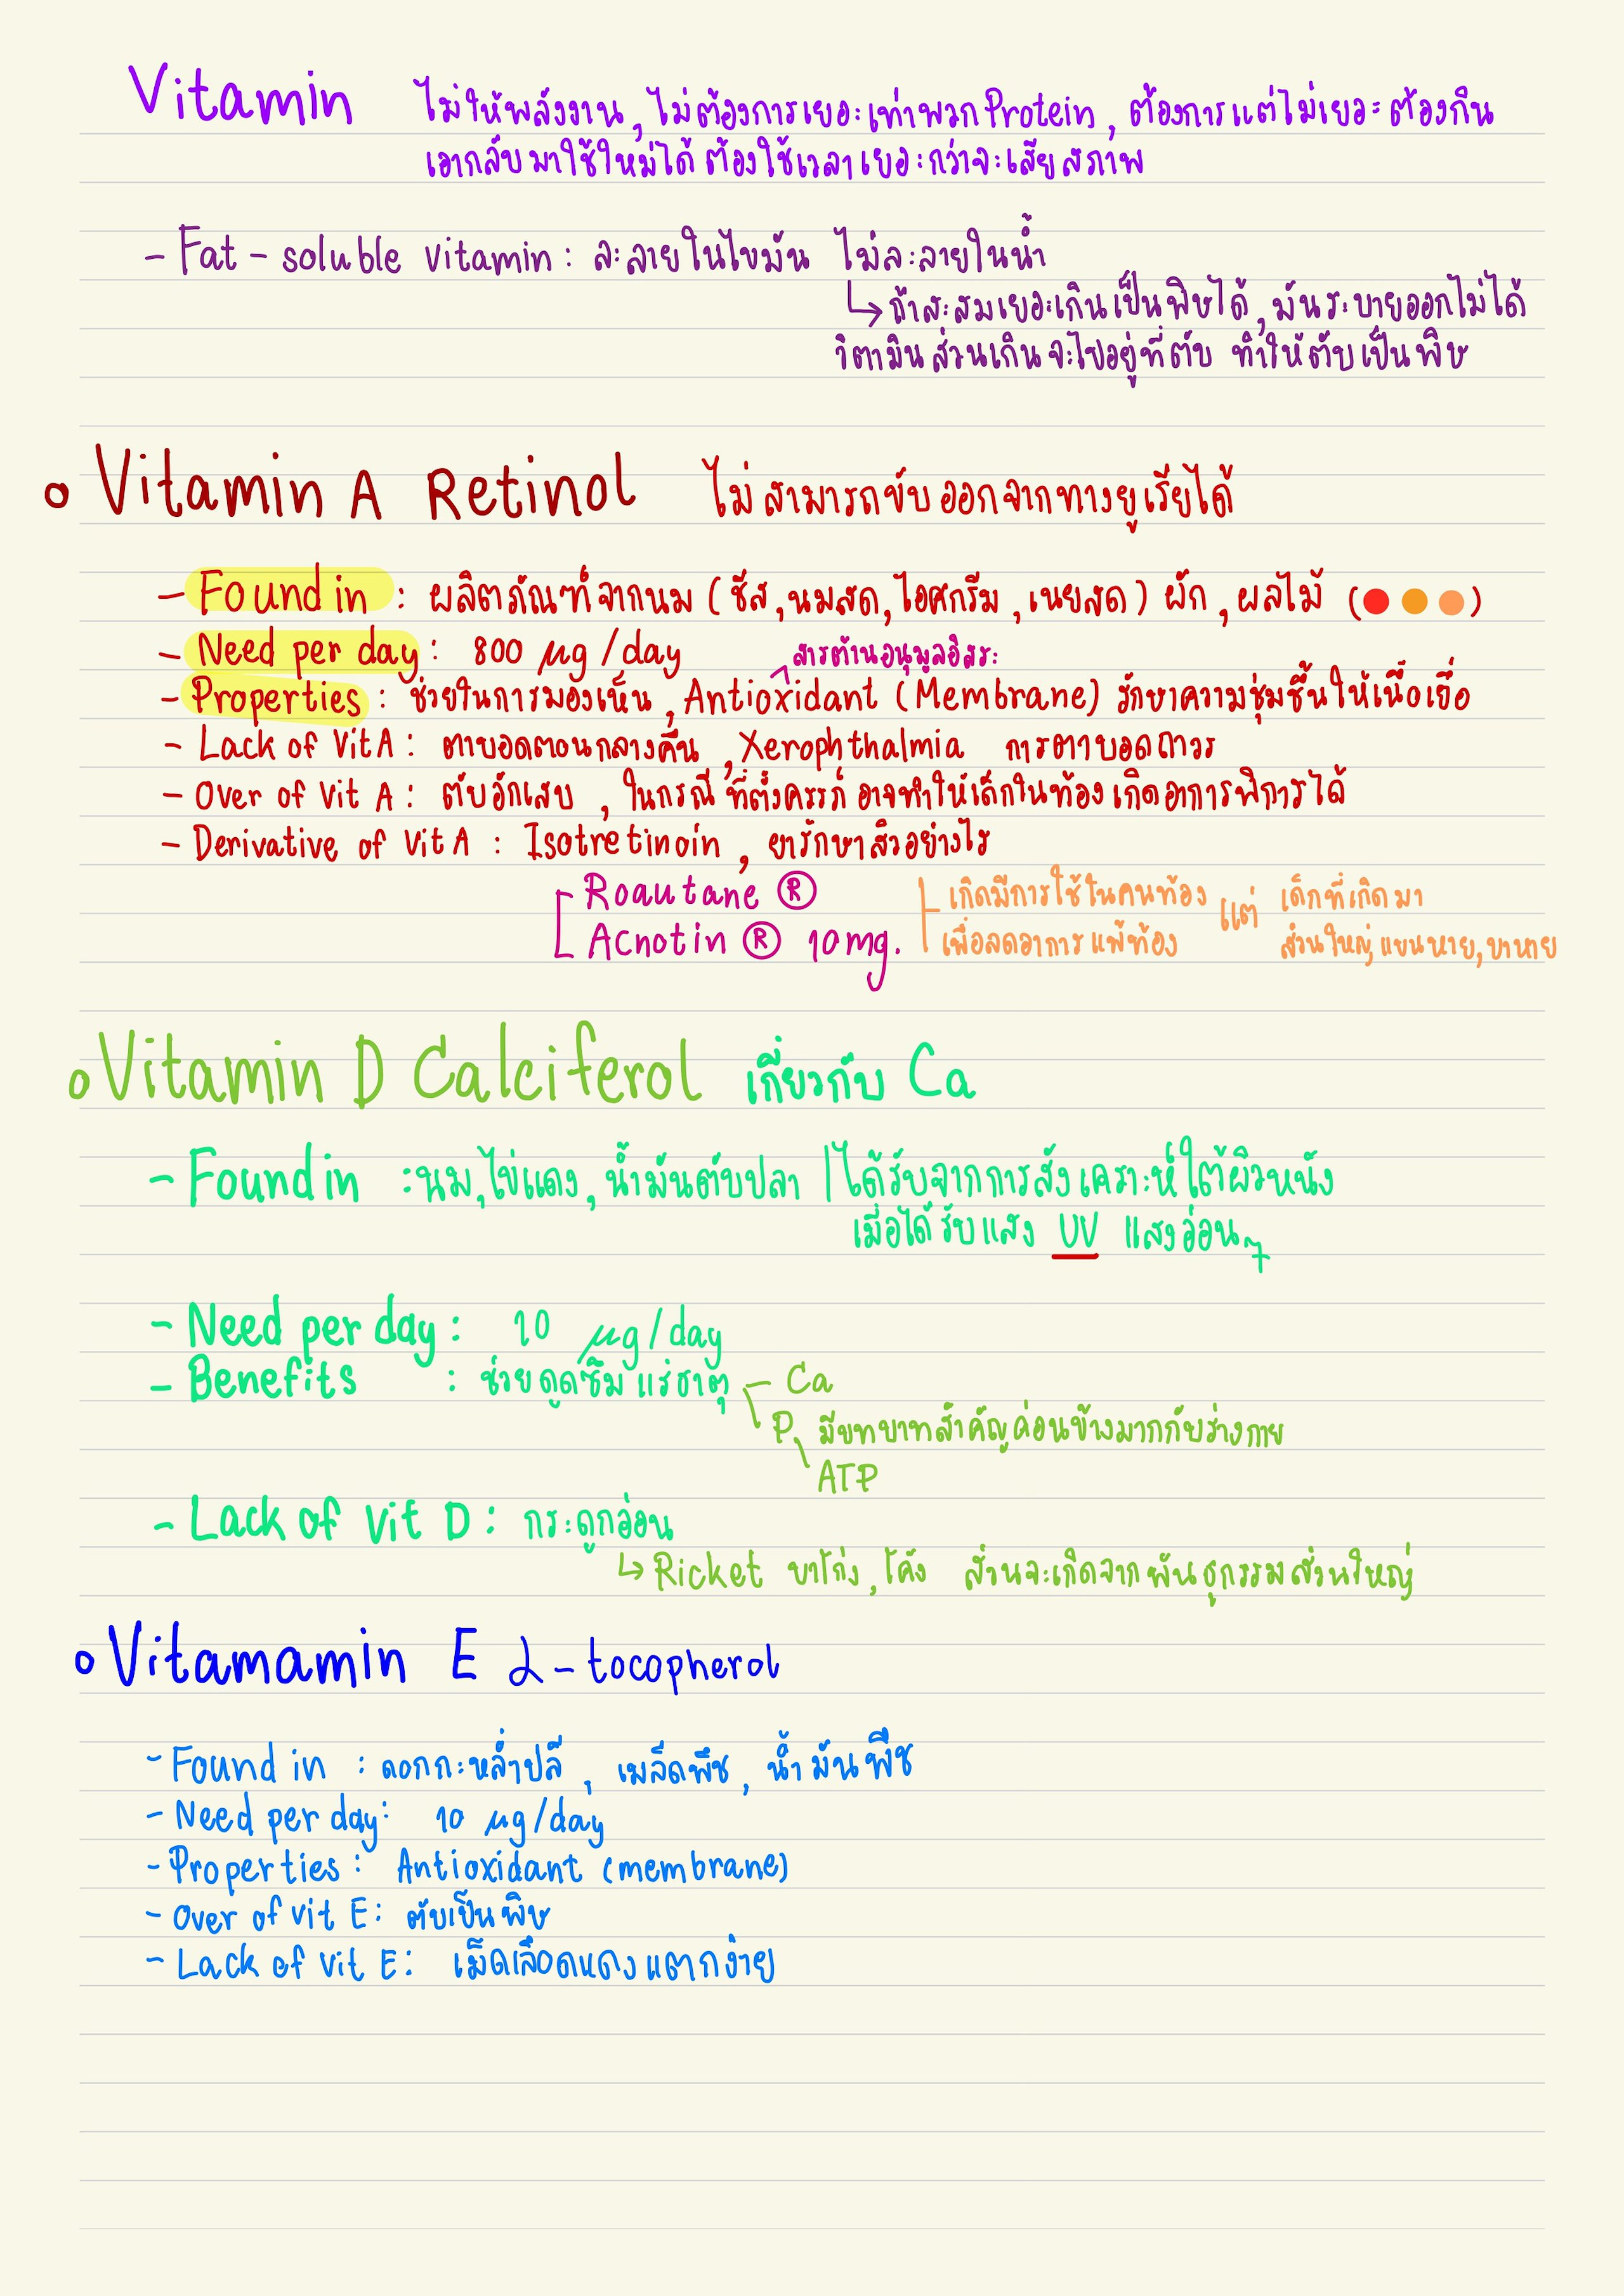 Vitamin ไม่ให้พลังงาน, ไม่ต้องการเยอะเท่าพวก Protein, ต้องการแต่ไม่เยอะ ต้องกิน
เอากลับมาใช้ใหม่ได้ ต้องใช้เวลาเยอะกว่าจะเสียสภาพ
- Fat-soluble vitamin: ละลายในไขมัน ไม่ละลายในน้ำ
↳ ถ้าสะสมเยอะเกินเป็นพิษได้, มันระบายออกไม่ได้
วิตามินส่วนเกินจะไปอยู่ที่ตับ ทำให้ตับเป็นพิษ
o Vitamin A Retinol ไม่สามารถขับออกจากทางยูเรียได้
- Found in : ผลิตภัณฑ์จากนม (ชีส, นมสด, ไอศกรีม, เนยสด) ผัก, ผลไม้ ( )
- Need per day : 800 µg/day
สารต้านอนุมูลอิสระ
- Properties : ช่วยในการมองเห็น, Antioxidant (Membrane) รักษาความชุ่มชื้นให้เนื้อเยื่อ
- Lack of Vit A : ตาบอดตอนกลางคืน, Xerophthalmia การตาบอดถาวร
- Over of Vit A : ตับอักเสบ, ในกรณีที่ตั้งครรภ์ อาจทำให้เด็กในท้องเกิดอาการพิการได้
- Derivative of Vit A : Isotretinoin, ยารักษาสิวอย่างไร
Roautane ® เกิดมีการใช้ในคนท้อง แต่ เด็กที่เกิดมา
Acnotin ® 10mg. เพื่อลดอาการแพ้ท้อง ส่วนใหญ่แขนหาย, ขาหาย
o Vitamin D Calciferol เกี่ยวกับ Ca
- Found in : นม, ไข่แดง, น้ำมันตับปลา | ได้รับจากการสังเคราะห์ใต้ผิวหนัง
เมื่อได้รับแสง UV แสงอ่อนๆ
- Need per day : 10 µg/day
- Benefits : ช่วยดูดซึมแร่ธาตุ Ca
P มีบทบาทสำคัญค่อนข้างมากกับร่างกาย
ATP
- Lack of Vit D : กระดูกอ่อน
↳ Ricket ขาโก่ง, โค้ง ส่วนจะเกิดจากพันธุกรรมส่วนใหญ่
o Vitamamin E α-tocopherol
- Found in : ดอกกะหล่ำปลี, เมล็ดพืช, น้ำมันพืช
- Need per day: 10 µg/day
- Properties : Antioxidant (membrane)
- Over of vit E: ตับเป็นพิษ
- Lack of Vit E: เม็ดเลือดแดงแตกง่าย